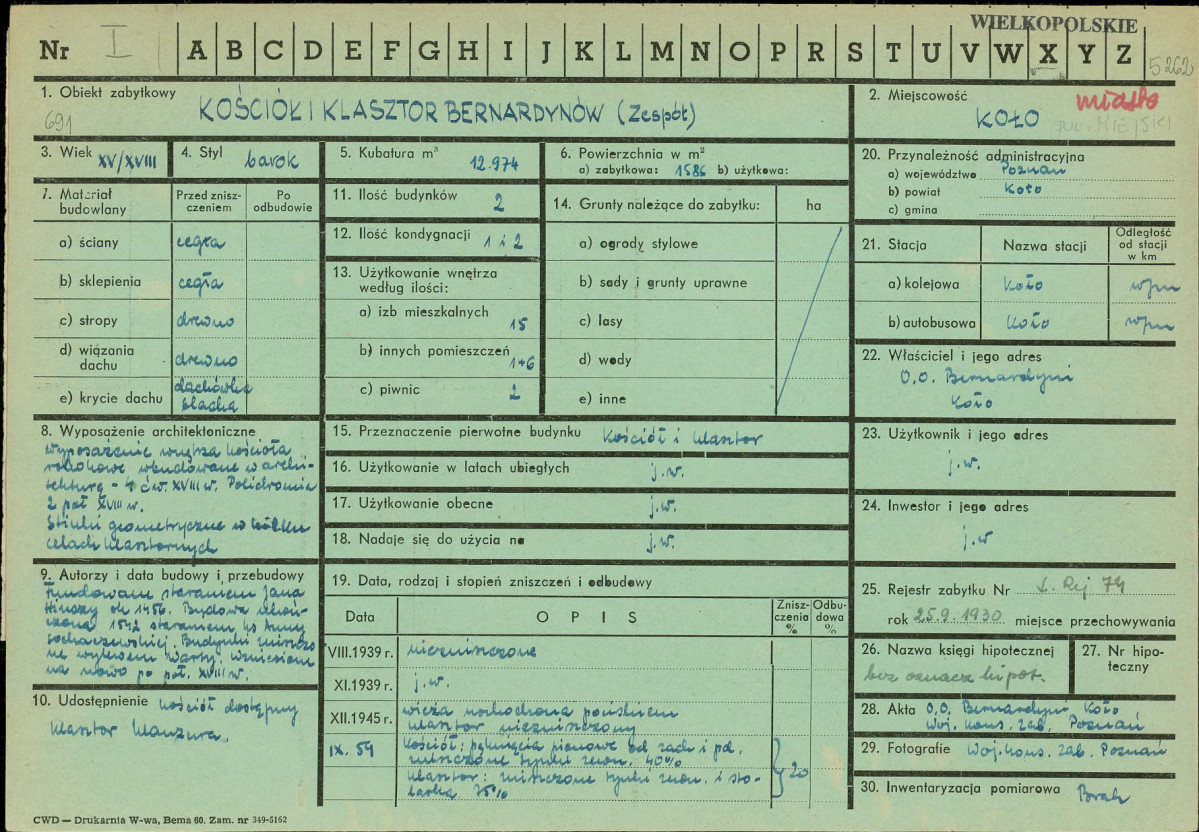 WIELKOPOLSKIE
Nr I A B C D E F G H I J K L M N O P R S T U V W X Y Z
5262
1. Obiekt zabytkowy
KOŚCIÓŁ I KLASZTOR BERNARDYNÓW (Zespół)
691
2. Miejscowość
miasto
KOŁO
3. Wiek XV/XVIII
4. Styl barok
5. Kubatura m³
12.974
6. Powierzchnia w m²
a) zabytkowa: 1586 b) użytkowa:
20. Przynależność administracyjna
a) województwo Poznań
b) powiat Koło
c) gmina
7. Materiał budowlany
Przed zniszczeniem
Po odbudowie
a) ściany cegła
b) sklepienia cegła
c) stropy drewno
d) wiązania dachu drewno
e) krycie dachu dachówka blacha
11. Ilość budynków 2
12. Ilość kondygnacji 1 i 2
13. Użytkowanie wnętrza
według ilości:
a) izb mieszkalnych 15
b) innych pomieszczeń 1+6
c) piwnic 2
14. Grunty należące do zabytku: ha
a) ogrody stylowe
b) sady i grunty uprawne
c) lasy
d) wody
e) inne
21. Stacja Nazwa stacji Odległość od stacji w km
a) kolejowa Koło
b) autobusowa Koło
22. Właściciel i jego adres
O.O. Bernardyni
Koło
8. Wyposażenie architektoniczne
Wyposażenie wnętrza kościoła
rokokowe wbudowane w archi-
tekturę - 4 ćw. XVIII w. Polichromia
2 poł XVIII w.
Stiuki geometryczne w kilku
celach klasztornych
15. Przeznaczenie pierwotne budynku Kościół i klasztor
16. Użytkowanie w latach ubiegłych j.w.
17. Użytkowanie obecne j.w.
18. Nadaje się do użycia na j.w.
23. Użytkownik i jego adres
j.w.
24. Inwestor i jego adres
j.w
9. Autorzy i data budowy i przebudowy
Fundowane staraniem Jana
Hinczy ok 1456. Budowa ukoń-
czona staraniem ks Anny
sochaczewskiej. Budynki zniszczo
ne wylewem Warty. Wzniesione
na nowo po poł. XVIII w.
10. Udostępnienie Kościół dostępny
klasztor klauzura.
19. Data, rodzaj i stopień zniszczeń i odbudowy
Data OPIS Zniszczenia % Odbudowa %
VIII.1939 r. niezniszczone
XI.1939 r. j.w.
XII.1945 r. wieża uszkodzona pociskiem
klasztor niezniszczony
IX. 59 Kościół: pęknięcia pionowe od zach i pd.
zniszczone tynki zewn. 40%
klasztor: zniszczone tynki zewn. i sto-
larka 35% 20
25. Rejestr zabytku Nr L. Rej 74
rok 25.9.1930 miejsce przechowywania
26. Nazwa księgi hipotecznej
bez oznacz hipot.
27. Nr hipoteczny
28. Akta O.O. Bernardyni Koło
Woj. Kons. Zab. Poznań
29. Fotografie Woj. Kons. Zab. Poznań
30. Inwentaryzacja pomiarowa Brak
CWD — Drukarnia W-wa, Bema 60. Zam. nr 349-5162